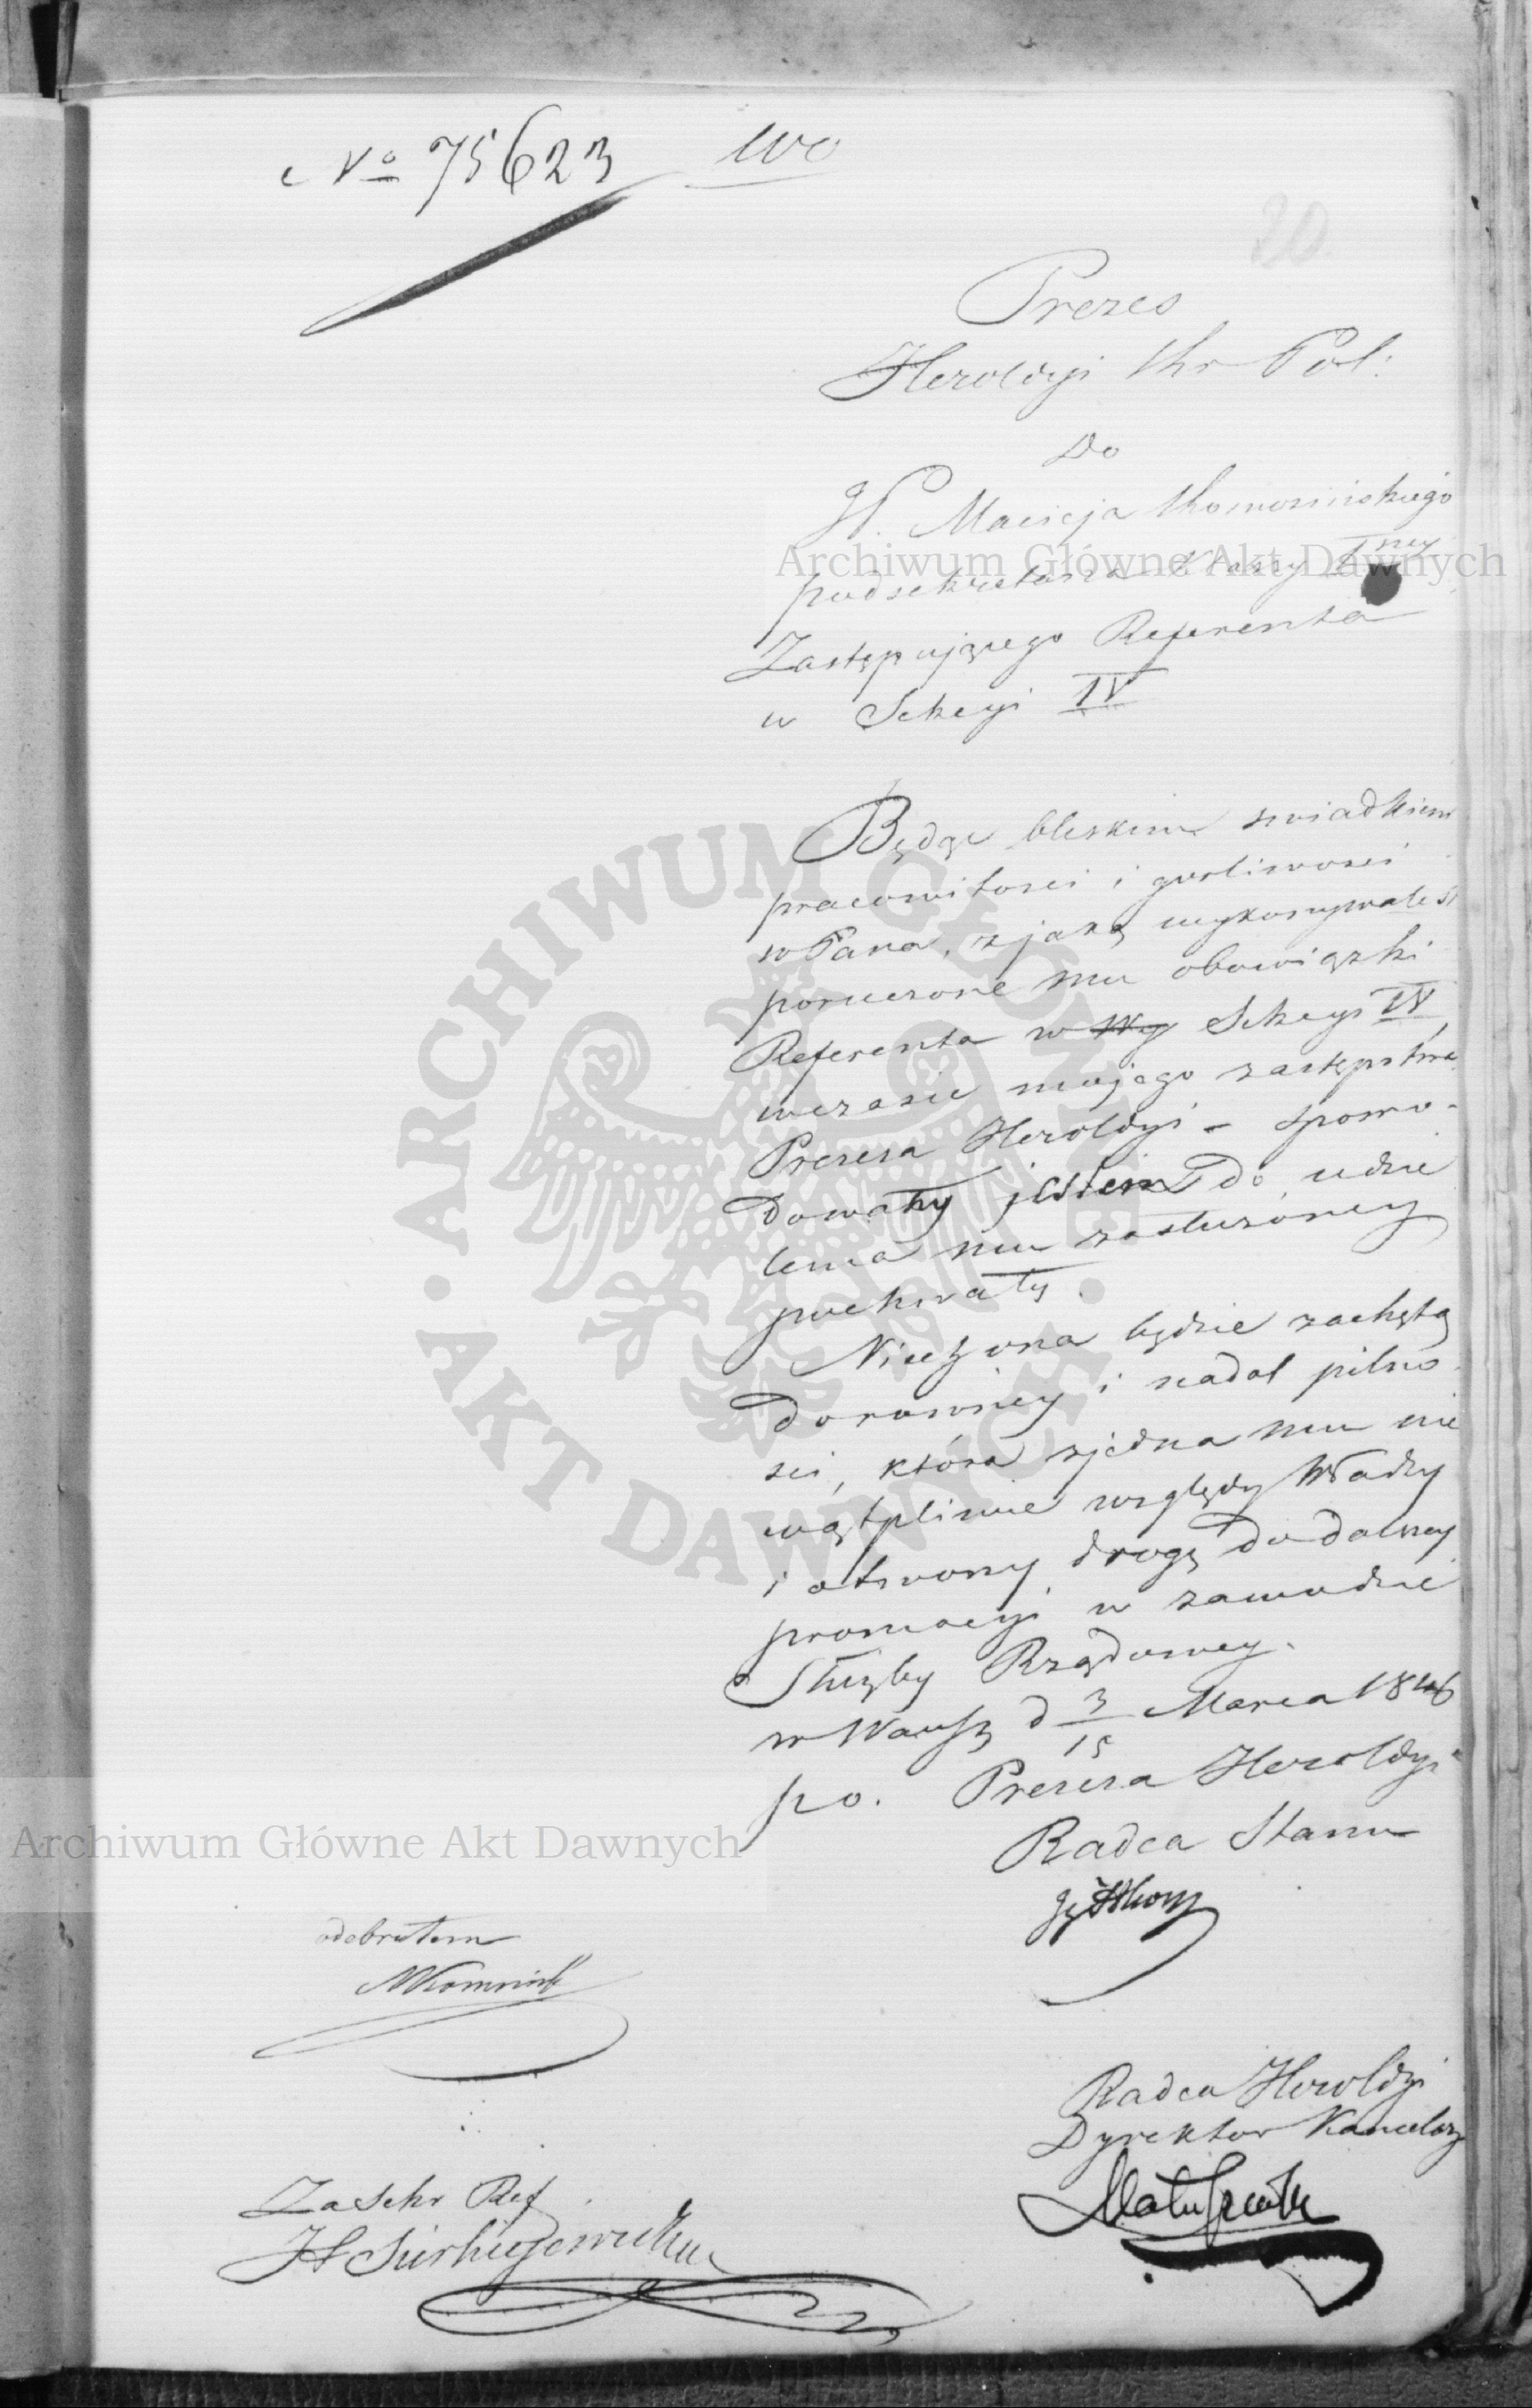 No 75623
20
Prezes
Heroldyi Kr Pol:
Do
W. Macieja Komornickiego
podsekretarza Klassy I nej
Zastępującego Referenta
w Sekcyi IV
Będąc bliskim swiadkiem
pracowitosci i gorliwosci
wPana, z jaką wykonywałeś
poruczone mu obowiązki
Referenta w Sekcyi IV,
wczasie mojego zastępstwa
Prezesa Heroldyi - spowo-
dowany jestem do udzie
lenia mu zasłuzoney
pochwały.
Niech ona będzie zachętą
do rowney i nadal pilno
sci, która zjedna mu nie
wątpliwie względy Władzy
i otworzy drogę do dalszey
promocyi w zawodzie
Służby Rządowey.
w Warsz d 3/15 Marca 1846
po. Prezesa Heroldyi
Radca Stanu
odebrałem
MKomornicki
Radca Heroldyi
Dyrektor Kancelary
Matuszewski
Za Sekr Ref
Archiwum Główne Akt Dawnych
Archiwum Główne Akt Dawnych
ARCHIWUM GŁÓWNE
AKT DAWNYCH